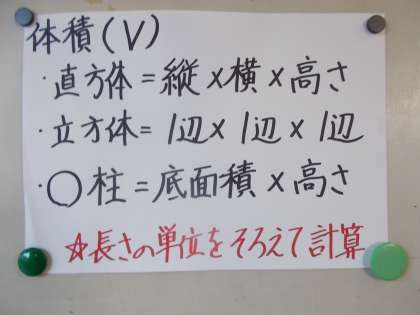 体積(V)
・直方体=縦×横×高さ
・立方体=1辺×1辺×1辺
・○柱=底面積×高さ
☆長さの単位をそろえて計算